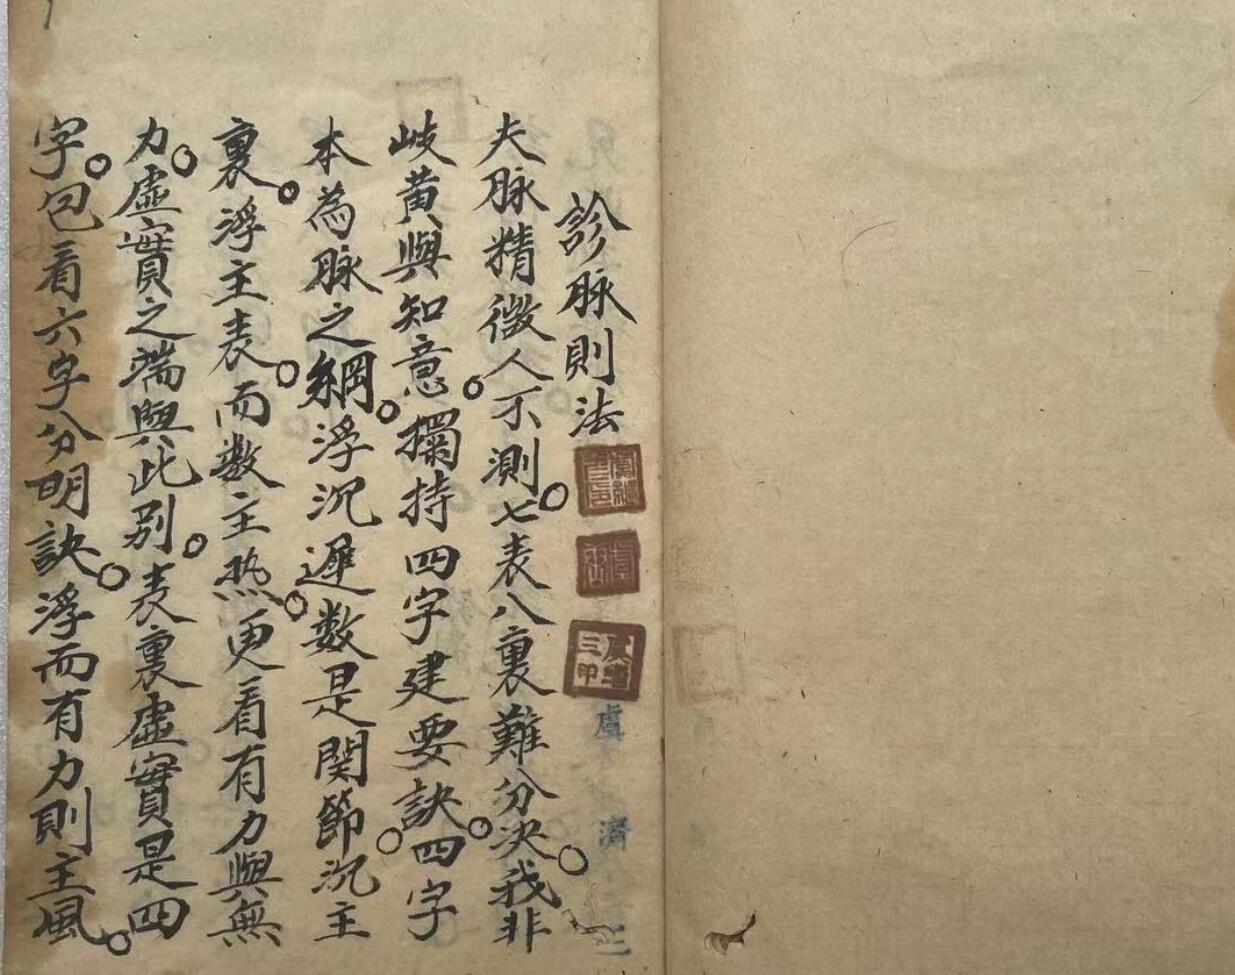 診脉則法
夫脉精微人不測。七表八裏難分决。我非
岐黄與知意。搊持四字建要訣。四字
本為脉之綱。浮沉遲数是関節。沉主
裏。浮主表。而数主热。更看有力與無
力。虛實之端與此别。表裏虛實是四
字。包看六字分明訣。浮而有力則主風。